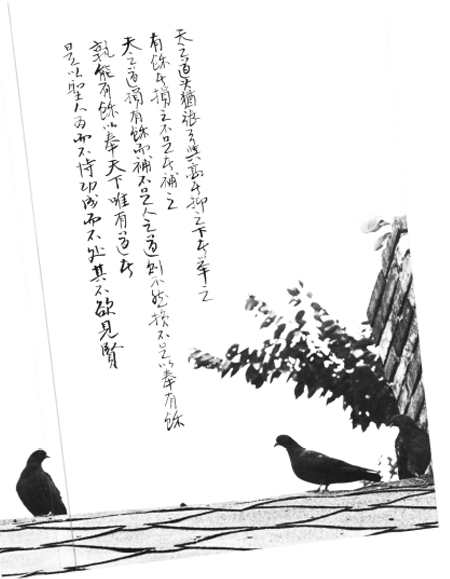 天之道其猶張弓與高者抑之下者举之
有餘者損之不足者補之
天之道損有餘而補不足人之道則不然損不足以奉有餘
孰能有餘以奉天下唯有道者
是以聖人为而不恃功成而不处其不欲見賢